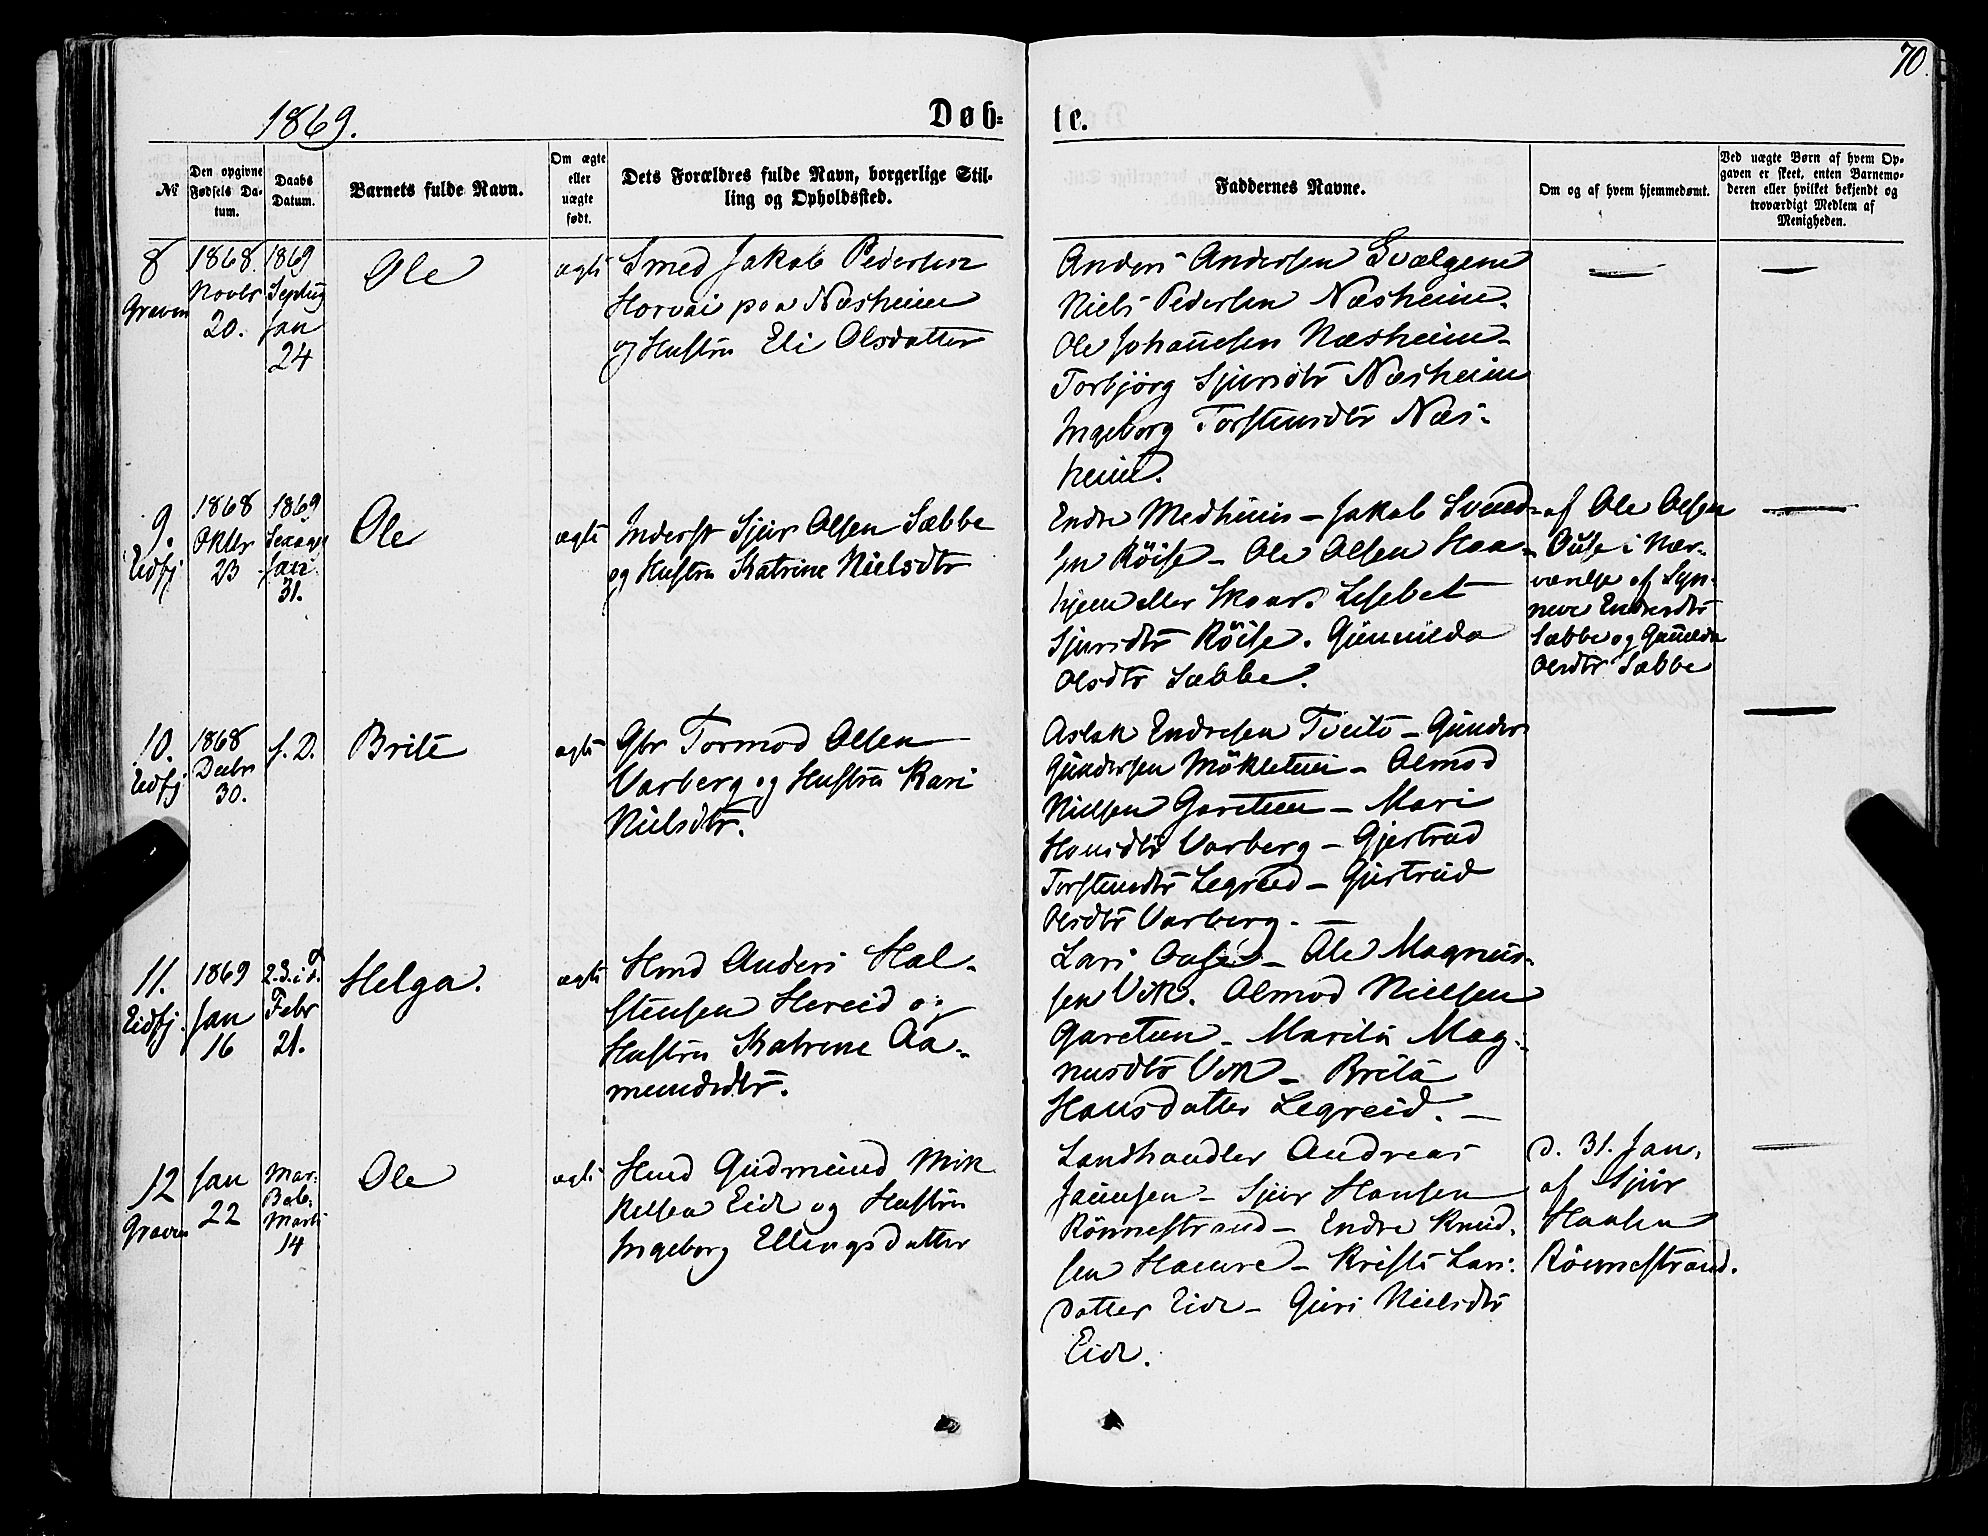 70.
1869.
Døb=
te.
№
Den opgivne Fødsels Datum.
Daabs Datum.
Barnets fulde Navn.
Om ægte eller uægte født.
Dets Forældres fulde Navn, borgerlige Stilling og Opholdssted.
Faddernes Navne.
Om og af hvem hjemmedøbt.
Ved uægte Børn af hvem Opgaven er skeet, enten Barnemoderen eller hvilket bekjendt og troværdigt Medlem af Menigheden.
8
Graven
1868.
Novbr
20.
1869
Jan
24
Ole
ægte
Smed Jakob Pedersen
paa Næsheim
og Hustru Eli Olsdatter
Anders Andersen
Niels Pedersen Næsheim.
Ole Johannesen Næsheim -
Torbjörg Sjursdtr Næsheim
Ingeborg Torsteinsdtr Næs-
heim.
9.
Eidfj
1868
Oktbr
23
1869
Jan.
31.
Ole
ægte
Inderst Sjur Olsen Sæbbe
og Hustru Katrine Nielsdtr
Endre Medhuus - Jakob Svend-
sen Röise - Ole Olsen Hœa-
hjem eller Skaar. Lisebet
Sjursdtr Röise. Gunnilda
Olsdtr Sæbbe.
af Ole Olsen
i Nær-
værelse af Syn-
neve Endresdtr
Sæbbe og Gunnilda
Olsdtr Sæbbe
10.
Eidfj
1868
Decbr
30.
s. D.
Brite
ægte
Gbr Tormod Olsen
Varberg og Hustru Kari
Nielsdtr.
Aslak Endresen Tveito - Gunder
Gundersen Mökletun - Almod
Nielsen Garetun - Mari
Hansdtr Varberg - Gjertrud
Torsteinsdtr Legreid - Gjertrud
Olsdtr Varberg. -
11.
Eidfj.
1869
Jan
16
2. S. i F.
Febr
21.
Helga.
ægte
Hmd Anders Hal-
stensen Hereid og
Hustru Katrine Aa-
mundsdtr.
Lars - Ole Magnus-
sen Vik. Almod Nielsen
Garetun - Marita Mag-
nusdtr Vik - Brita
Hansdatter Legreid. -
12
Graven
Jan
22
Mar.
Bob.
Marts
14
Ole
ægte
Hmd Gudmund Mik
kelsen Eide og Hustru
Ingeborg Ellingsdatter
Landhandler Andreas
Jaunsen - Sjur Hansen
Rönnestrand - Endre Knud-
sen Hamre - Kristi Lars-
datter Eide - Guri Nielsdtr
Eide.
d. 31. Jan.
af Sjur
Hansen
Rönnestrand.